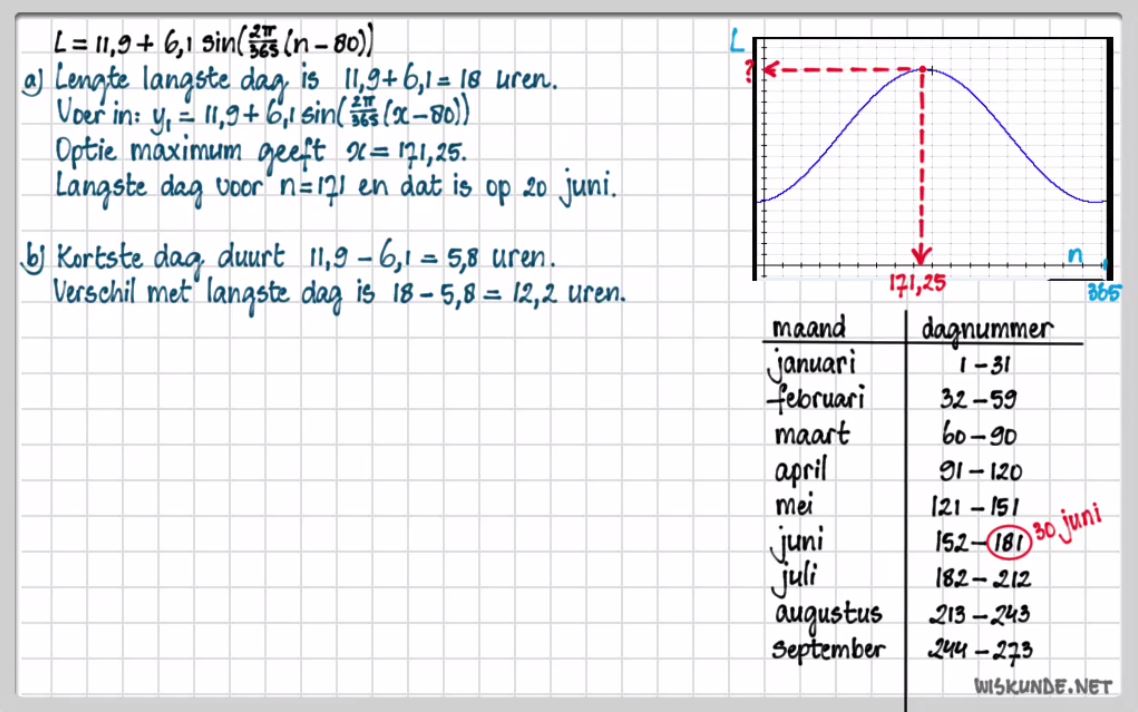 L = 11,9 + 6,1 sin(2π/365 (n - 80))
a) Lengte langste dag is 11,9 + 6,1 = 18 uren.
Voer in: y₁ = 11,9 + 6,1 sin(2π/365 (x - 80))
Optie maximum geeft x = 171,25.
Langste dag voor n = 171 en dat is op 20 juni.
b) Kortste dag duurt 11,9 - 6,1 = 5,8 uren.
Verschil met langste dag is 18 - 5,8 = 12,2 uren.
L
?
n
171,25
365
maand dagnummer
januari 1 - 31
februari 32 - 59
maart 60 - 90
april 91 - 120
mei 121 - 151
juni 152 - 181 30 juni
juli 182 - 212
augustus 213 - 243
september 244 - 273
WISKUNDE.NET